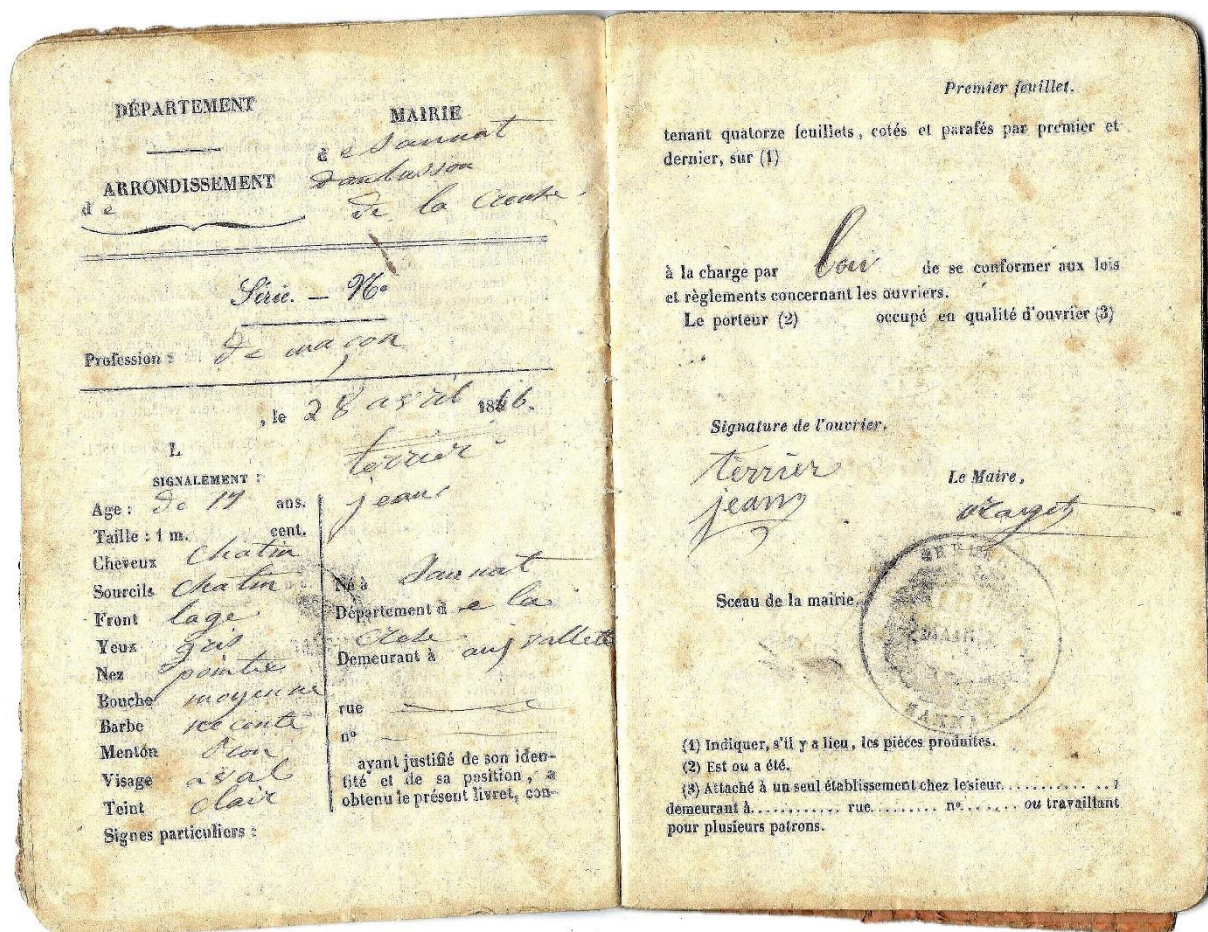 DÉPARTEMENT
MAIRIE
de Sannat
ARRONDISSEMENT
d'aubusson
d e
de la Creuse
Série. — No
Profession : De maçon
, le 28 avril 1866.
L
terrier
jean
SIGNALEMENT :
Age : De 17 ans.
Taille : 1 m. cent.
Cheveux chatin
Sourcils chatin
Front lage
Yeux gris
Nez pointue
Bouche moyenne
Barbe
Menton
Visage aval
Teint clair
Signes particuliers :
Né à Sannat
Département d e la
Demeurant à aux vallette
rue
no
ayant justifié de son iden-
tité et de sa position, a
obtenu le présent livret, con-
Premier feuillet.
tenant quatorze feuillets, cotés et parafés par premier et
dernier, sur (1)
à la charge par de se conformer aux lois
et règlements concernant les ouvriers.
Le porteur (2) occupé en qualité d'ouvrier (3)
Signature de l'ouvrier.
terrier
jean
Le Maire,
Sceau de la mairie.
MAIRIE
SANNAT
(1) Indiquer, s'il y a lieu, les pièces produites.
(2) Est ou a été.
(3) Attaché à un seul établissement chez le sieur............
demeurant à............ rue......... no....... ou travaillant
pour plusieurs patrons.